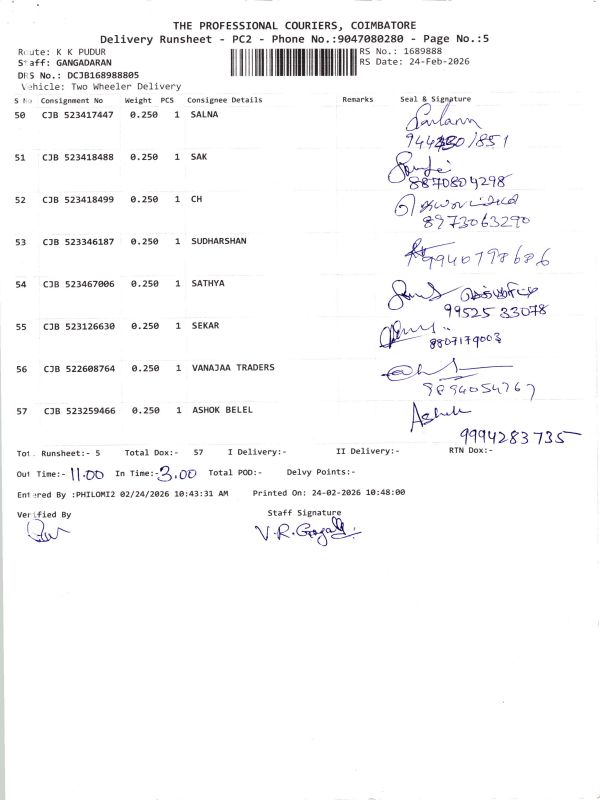 THE PROFESSIONAL COURIERS, COIMBATORE
Delivery Runsheet - PC2 - Phone No.:9047080280 - Page No.:5
Route: K K PUDUR
RS No.: 1689888
Staff: GANGADARAN
RS Date: 24-Feb-2026
DRS No.: DCJB168988805
Vehicle: Two Wheeler Delivery
S No Consignment No Weight PCS Consignee Details Remarks Seal & Signature
50 CJB 523417447 0.250 1 SALNA
51 CJB 523418488 0.250 1 SAK
8870804298
52 CJB 523418499 0.250 1 CH
8973063290
53 CJB 523346187 0.250 1 SUDHARSHAN
9940798686
54 CJB 523467006 0.250 1 SATHYA
99525 33078
55 CJB 523126630 0.250 1 SEKAR
8807179003
56 CJB 522608764 0.250 1 VANAJAA TRADERS
9894054767
57 CJB 523259466 0.250 1 ASHOK BELEL
Ashok
9994283735
Tot. Runsheet:- 5 Total Dox:- 57 I Delivery:- II Delivery:- RTN Dox:-
Out Time:- 11.00 In Time:- 3.00 Total POD:- Delvy Points:-
Entered By :PHILOMI2 02/24/2026 10:43:31 AM Printed On: 24-02-2026 10:48:00
Verified By Staff Signature